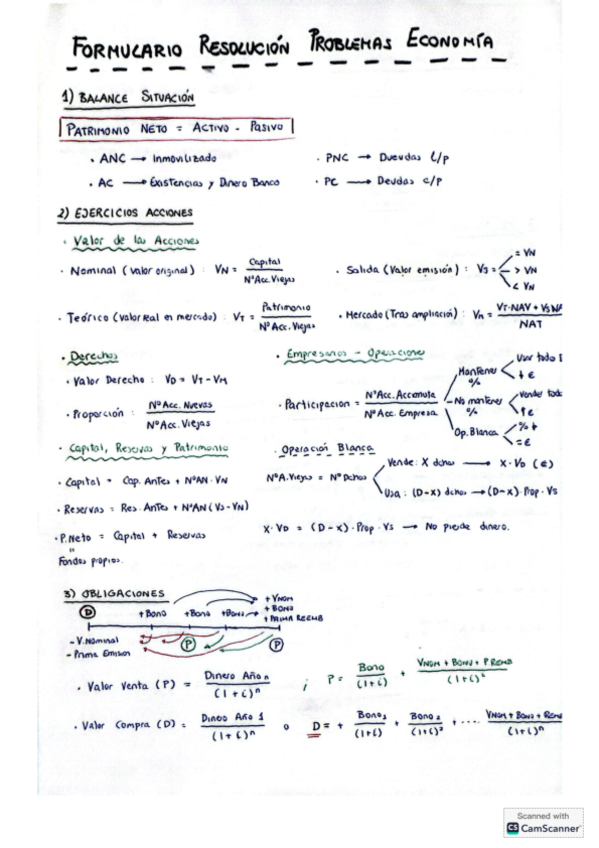 FORMULARIO RESOLUCIÓN PROBLEMAS ECONOMÍA
1) BALANCE SITUACIÓN
PATRIMONIO NETO = ACTIVO - PASIVO
· ANC → Inmovilizado
· PNC → Dueudas l/p
· AC → Existencias y Dinero Banco
· PC → Deudas c/p
2) EJERCICIOS ACCIONES
· Valor de las Acciones
· Nominal (valor original) : VN = Capital / NºAcc.Viejas
· Salida (Valor emisión) : Vs = < = VN
> VN
< VN
· Teórico (Valor Real en mercado) : VT = Patrimonio / NºAcc.Viejas
· Mercado (Tras ampliación) : VM = VT·NAV + VS·NA / NAT
· Derechos
· Empresarios - Operaciones
· Valor Derecho : VD = VT - VM
· Proporción : NºAcc. Nuevas / NºAcc. Viejas
· Participacion = NºAcc. Accionista / NºAcc. Empresa
Mantener % < Usar todo
+ €
No mantener % < Vender tod
↑ €
Op. Blanca < % ↓
= €
· Capital, Reservas y Patrimonio
· Operación Blanca
· Capital = Cap. Antes + NºAN · VN
NºA.Viejas = NºDchos
Vende: X dchos → X·VD (€)
Usa : (D-x) dchos → (D-x)·Prop·Vs
· Reservas = Res. Antes + NºAN (Vs - VN)
· P.Neto = Capital + Reservas
"
Fondos propios.
X·VD = (D-x)·Prop·Vs → No pierde dinero.
3) OBLIGACIONES
D
+ Bono
+ Bono
+ Bono
+ VNOM
+ BONO
+ PRIMA REEMB
- V.Nominal
- Prima Emision
P
P
· Valor Venta (P) = Dinero Año n / (1+i)ⁿ ; P = Bono / (1+i) + VNOM + BONO + P REMB / (1+i)²
· Valor Compra (D) = Dinero Año 1 / (1+i)ⁿ o D = + Bono1 / (1+i) + Bono2 / (1+i)² + ... VNOM + Bono + REMB / (1+i)ⁿ
Scanned with
CS CamScanner